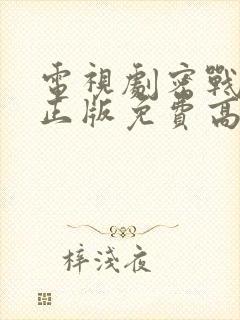 電視劇密戰
正版免費高
梓淺夜